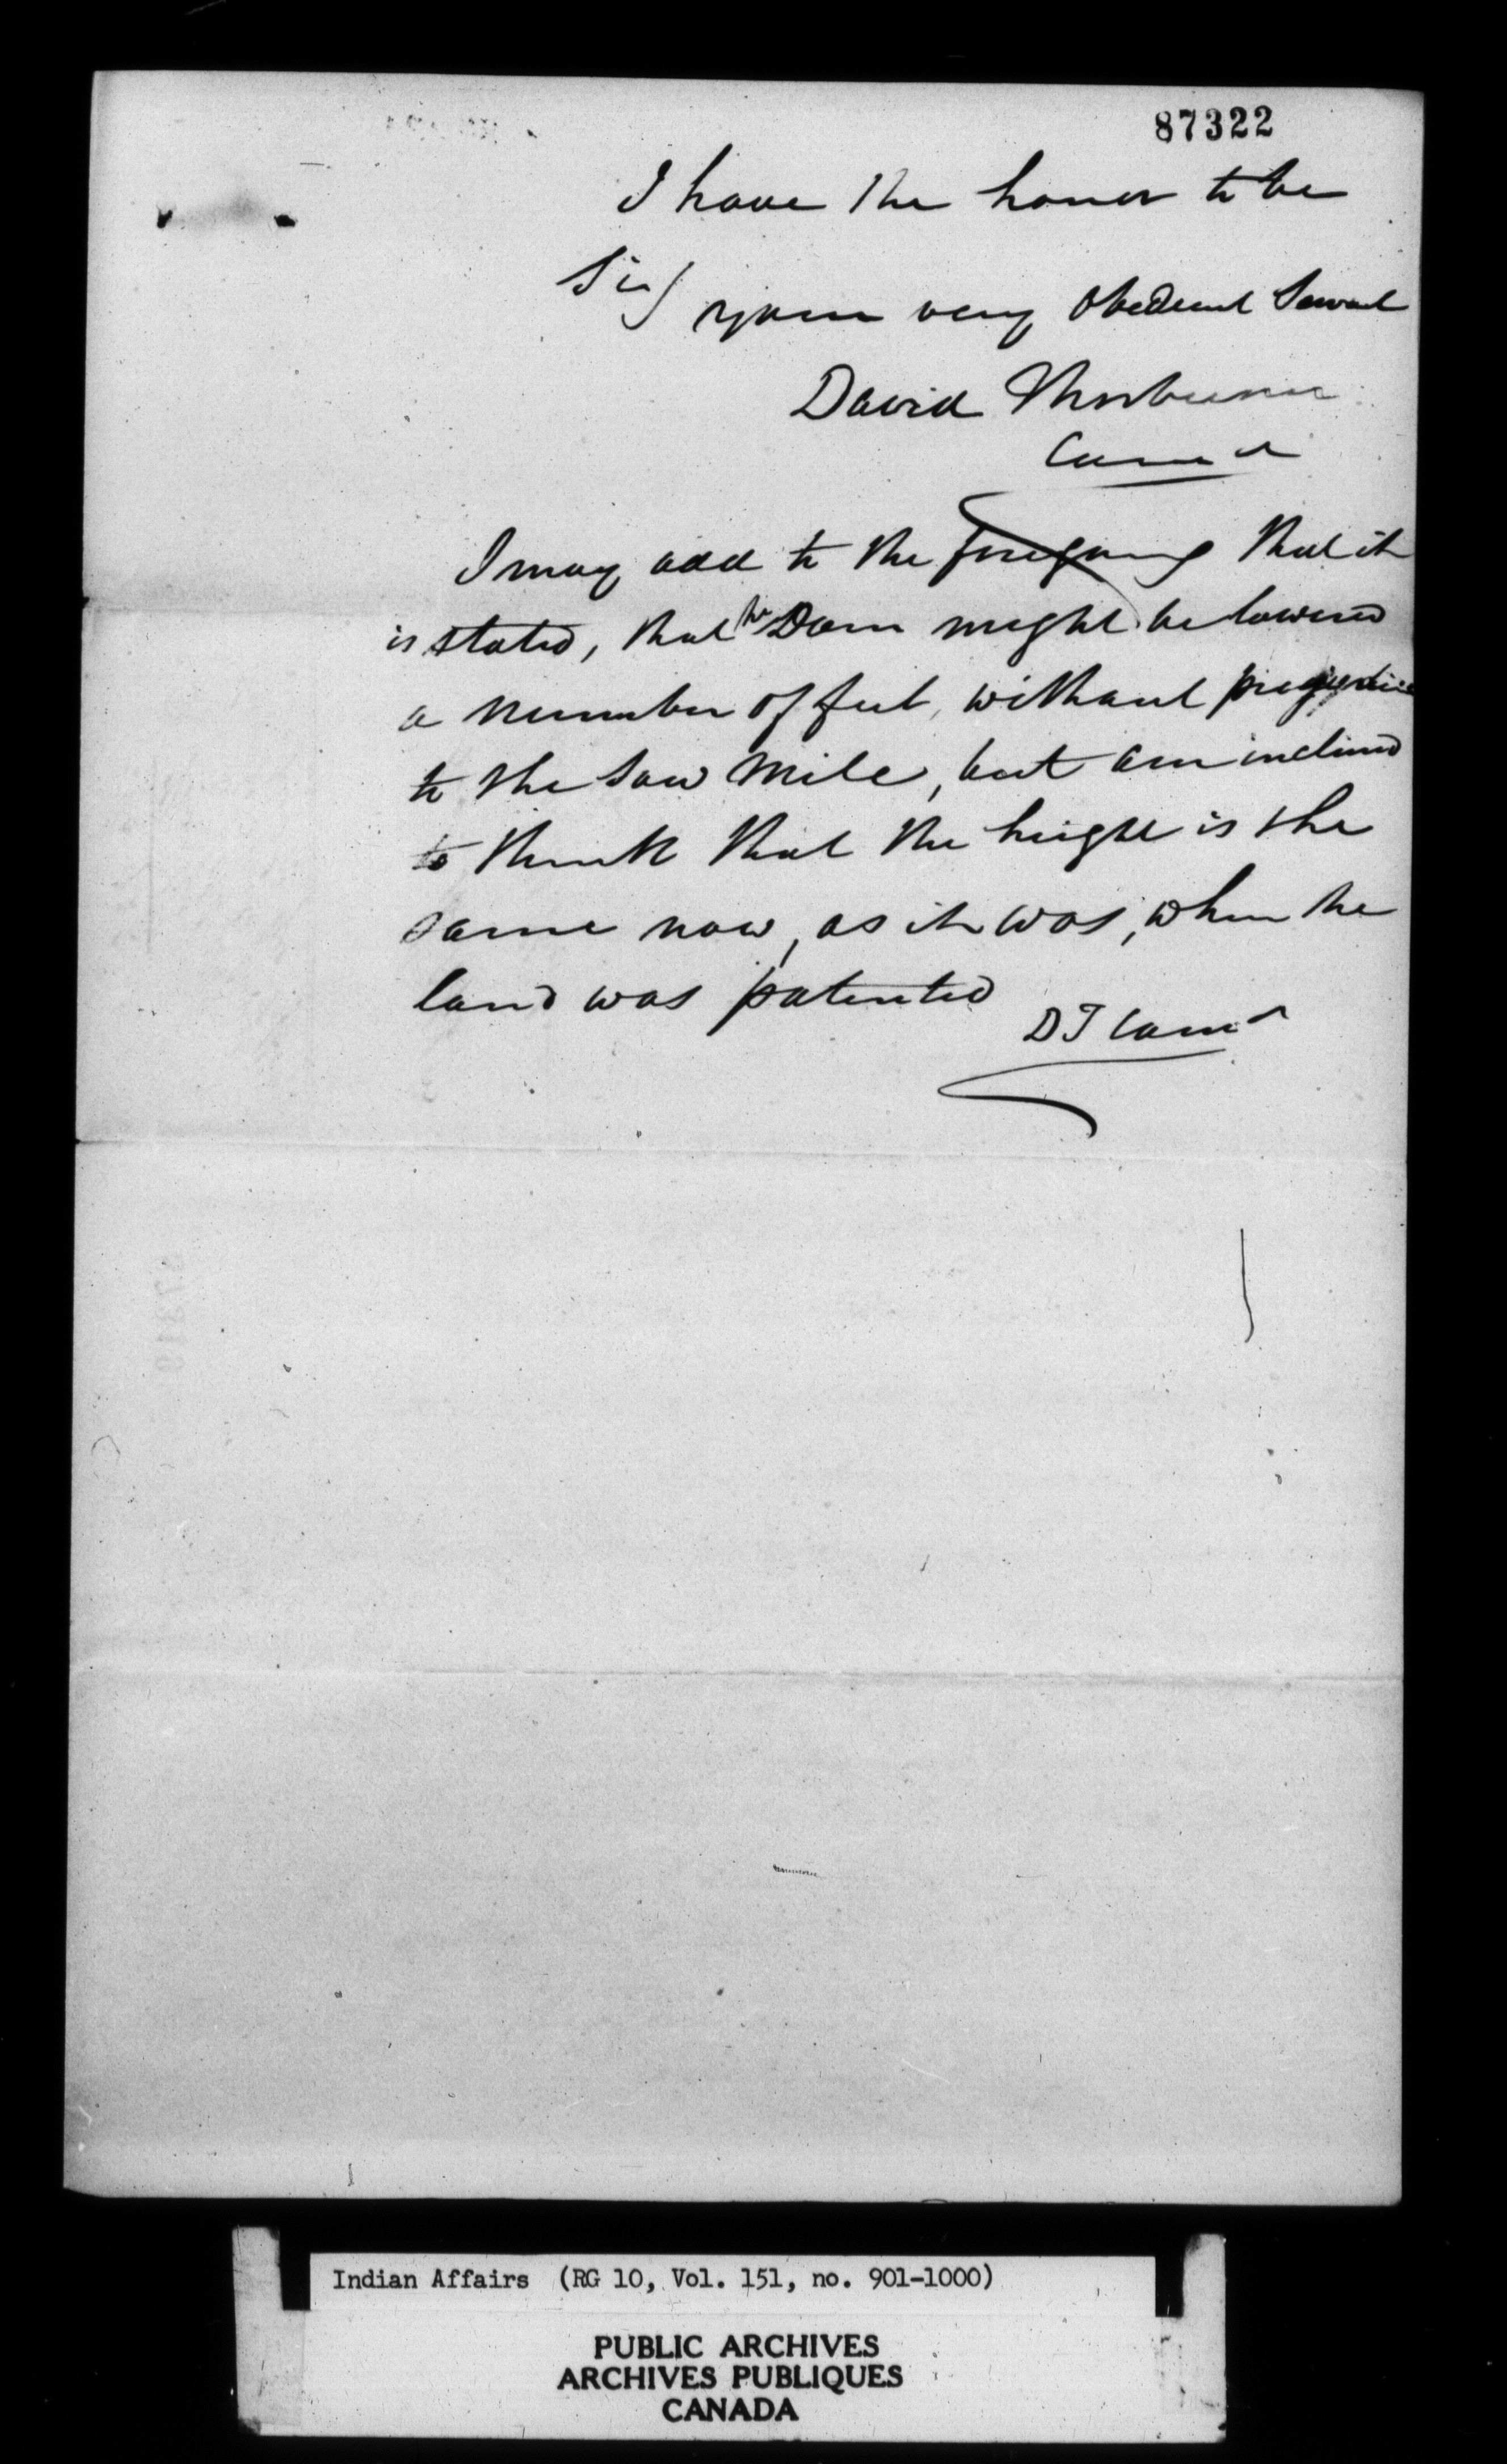 87322
I have the honor to be
Sir/ your very obedient Servant
David Thorburn
Comr
I may add to the foregoing that it
is stated, that the Dam might be lowered
a number of feet, without prejudice
to the Saw Mill, but am inclined
to think that the height is the
same now, as it was, when the
land was patented
DT Comr
Indian Affairs (RG 10, Vol. 151, no. 901-1000)
PUBLIC ARCHIVES
ARCHIVES PUBLIQUES
CANADA